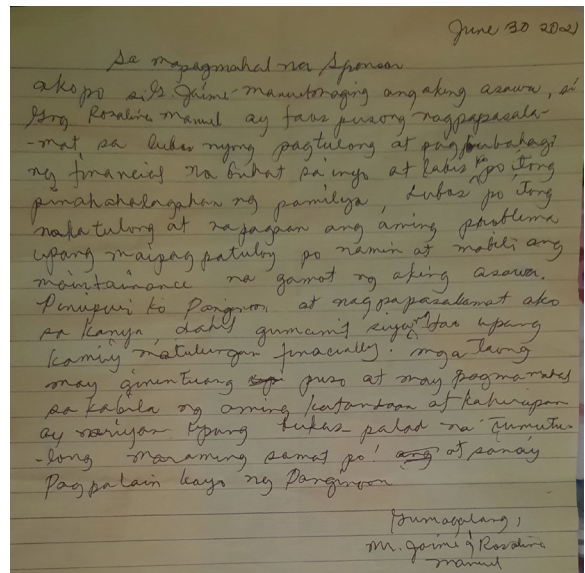 June 30 2021
Sa mapagmahal na Sponsor
ako po si G. Jaime Manuel maging ang aking asawa, si
Gng Rosalina Manuel ay taos pusong nagpapasala-
-mat sa lubos nyong pagtulong at pagbabahagi
ng financial na buhat sa inyo at labis po itong
pinahahalagahan ng pamilya, Lubos po itong
nakatulong at napagaan ang aming problema
upang maipag patuloy po namin at mabili ang
maintainance na gamot ng aking asawa.
Pinupuri ko Panginoon at nagpapasalamat ako
sa kanya, dahil gumamit siya ng tao upang
kami'y matulungan finacially. mga taong
may ginintuang puso at may pagmamahal
sa kabila ng aming katandaan at kahirapan
ay nariyan upang bukas palad na tumutu-
-long maraming samat po! at sanay
Pagpalain kayo ng Panginoon
Gumagalang,
Mr. Jaime & Rosalina
Manuel